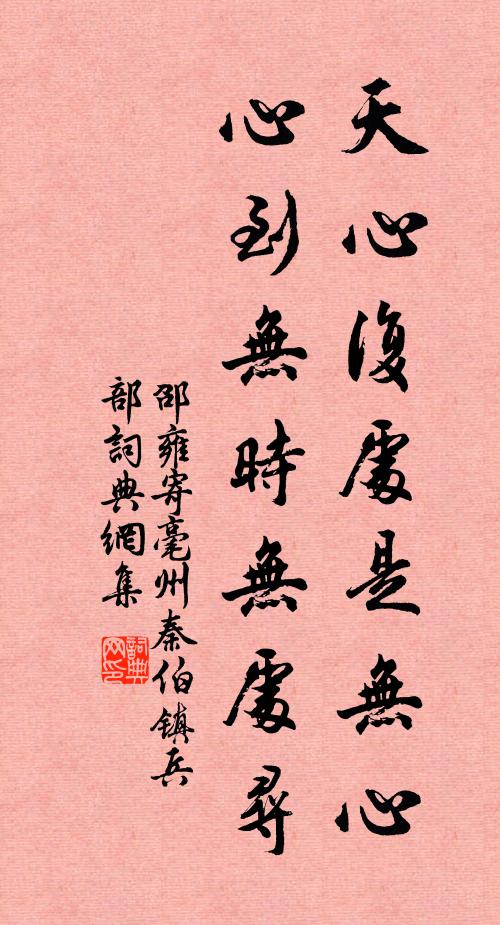 天心復處是無心
心到無時無處尋
邵雍寄亳州秦伯镇兵
部詞典網集
詞典网印